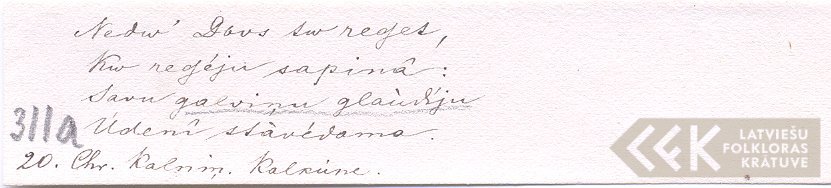 Nedw' Dovs tw reget,
Kw regéju sapinâ:
Savu galviņu glàudíju
Údenî stàvédama.
311a
20. Chr. Kalnin, Kalkúne.
LATVIEŠU
FOLKLORAS
KRĀTUVE